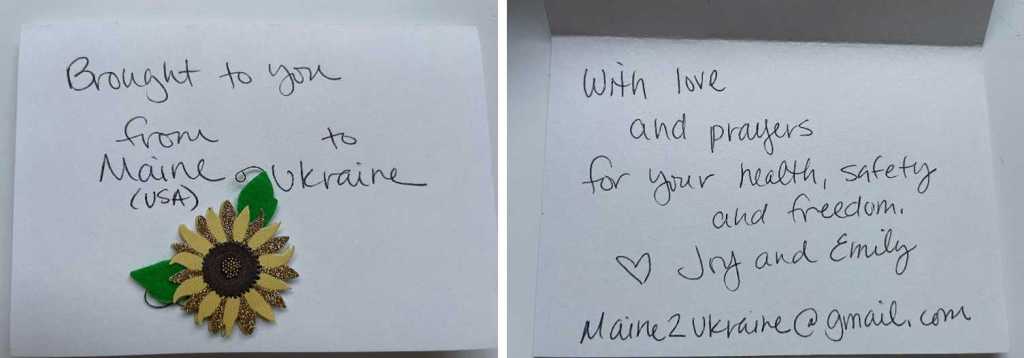 Brought to you
from to
Maine Ukraine
(USA)
With love
and prayers
for your health, safety
and freedom.
♡ Joy and Emily
Maine2Ukraine@gmail.com